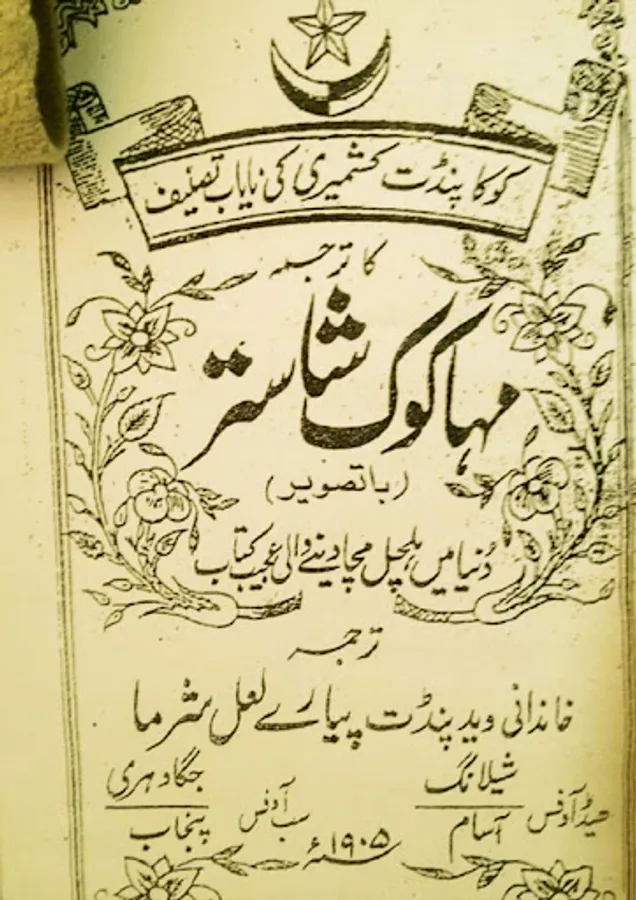 کوکا پنڈت کشمیری کی نایاب تصنیف
کا ترجمہ
مہا کوک شاستر
(با تصویر)
دُنیا میں ہلچل مچا دینے والی عجیب کتاب
ترجمہ
خاندانی وید پنڈت پیارے لعل شرما
ھیڈ آفس شیلانگ سب آفس جگادہری
آسام پنجاب
۱۹۰۵ء